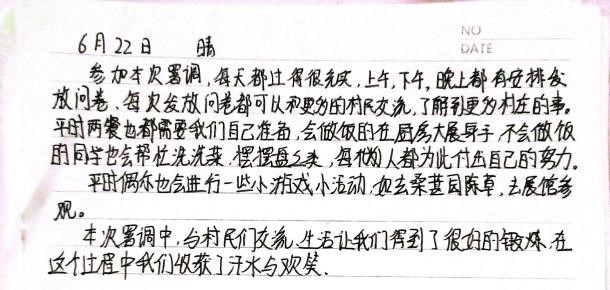 NO
DATE
6月22日 晴
参加本次暑调,每天都过得很充实,上午,下午,晚上都有安排发
放问卷,每次发放问卷都可以和更多的村民交流,了解到更多村庄的事。
平时两餐也都需要我们自己准备,会做饭的在厨房大展身手,不会做饭
的同学也会帮忙洗洗菜,摆摆盘之类,每个人都为此付出自己的努力。
平时偶尔也会进行一些小游戏小活动,如去桑葚园除草,去展馆参
观。
本次暑调中,与村民们交流,生活让我们得到了很好的锻炼,在
这个过程中我们收获了汗水与欢笑.